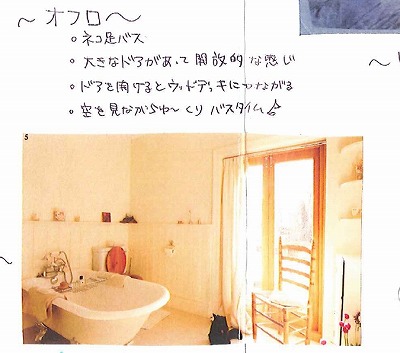 ～オフロ～
。ネコ足バス
。大きなドアがあって開放的な感じ
。ドアを開けるとウッドデッキにつながる
。空を見ながらゆ〜くりバスタイム☆
5